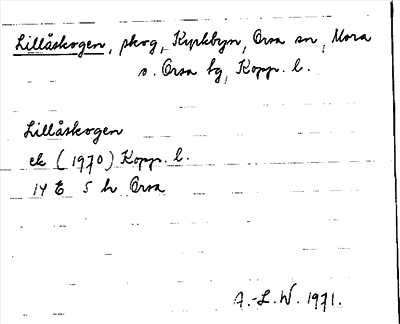 Lillåskogen, skog, Kyrkbyn, Orsa sn, Mora
o. Orsa tg, Kopp. l.
Lillåskogen
ek (1970) Kopp. l.
14 E 5 h Orsa
A.-L.W. 1971.